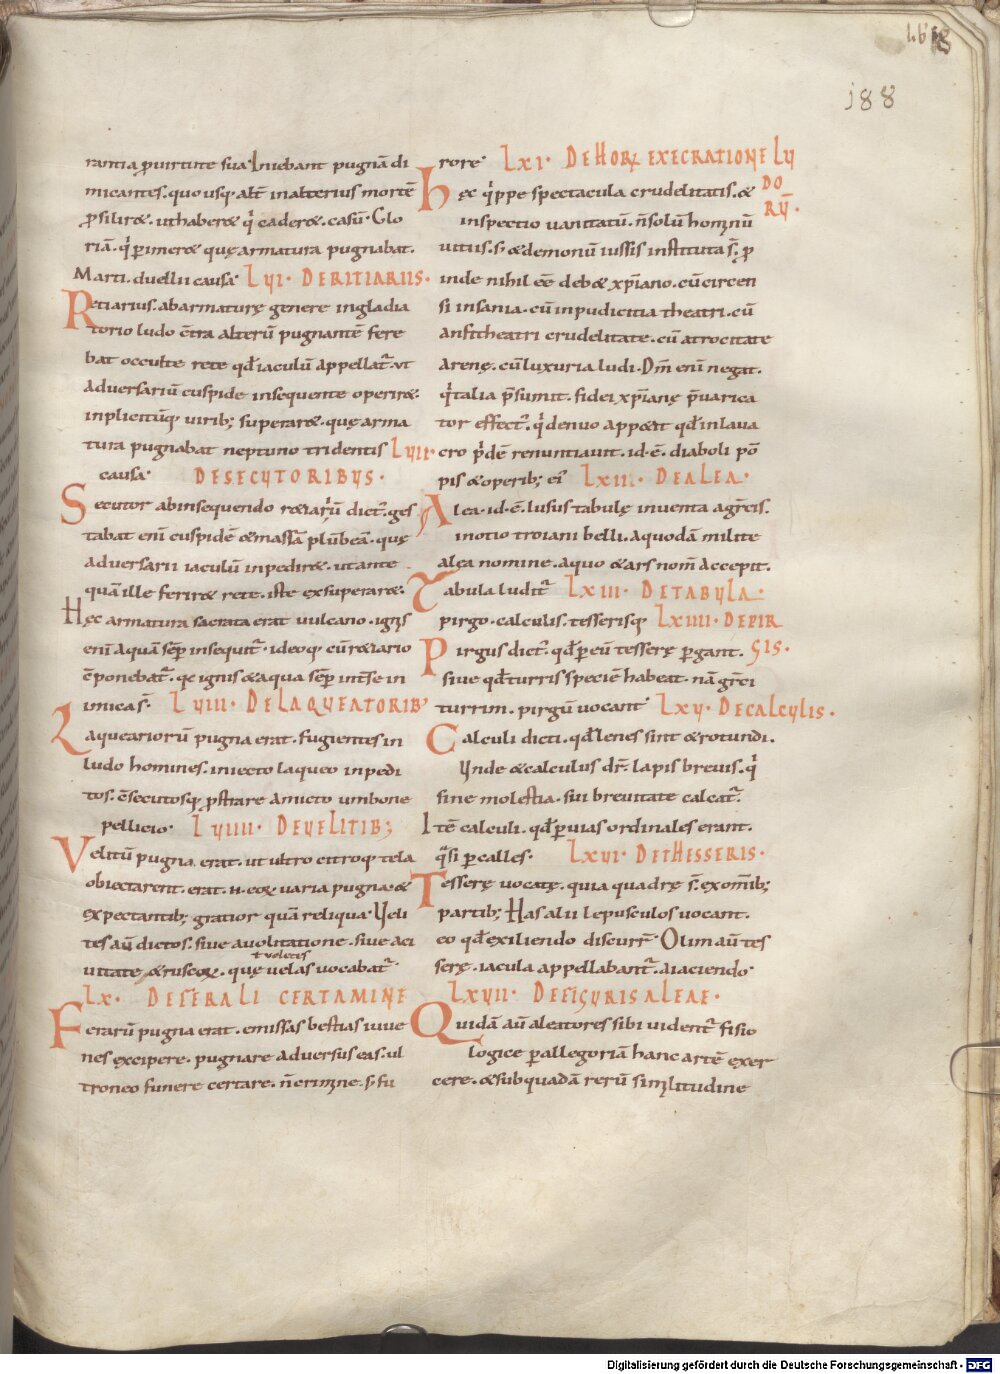 188
rantia ꝑ uirtute sua· Iniebant pugnā di
micantes. quo usq· alt̄ in alterius mortē
ꝓsiliret. ut haberet q̇ caderet. casū· Glo
riā. q̇ ꝑimeret quę armatura pugnabat.
Marti. duellii causa· LVI· DE RITIARIIS·
Retiarius. ab armaturę genere in gladia
torio ludo c̄tra alterū pugnantē fere
bat occulte rete qd̄ iaculū appellat̄· ut
aduersariū cuspide insequente operiret·
inplicitūq; uirib; superaret· quę arma
tura pugnabat neptuno tridentis LVII·
causa· DE SECUTORIBUS·
Secutor ab insequendo retiariū dict̄· ges
tabat enī cuspidē & massā plūbeā· quę
aduersarii iaculū inpediret. ut ante
quā ille feriret rete. iste exsuperaret·
Hęc armatura sacrata erat uulcano· ignis
enī aquā sēp insequit̄· ideoq· cū retiario
c̄ponebat̄· qc ignis & aqua sēp int̄ se in
imica s̄· LVIII· DE LAQUEATORIB'
Laqueariorū pugna erat· fugientes in
ludo homines. iniecto laqueo inpedi
tos· c̄secutosq· ꝓstrare amicto umbone
pellicio· LVIIII· DE VELITIB;
Velitū pugna erat. ut ultro citroq· tela
obiectarent. erat. n· eoꝝ uaria pugna· &
expectantib; gratior quā reliqua· Veli
tes aū dictos· siue a uolitatione· siue a ci
t veletis
uitate & ruscoꝝ· quę uelas uocabat̄·
LX· DE FERALI CERTAMINE
Ferarū pugna erat· emissas bestias iuue
nes excipere· pugnare aduersus eas· ul
troneo funere certare. n̄ crimine· s; fu
rore· LXI· DE HORꝝ EXECRATIONE LU
DO
RŪ·
hęc q̇ppe spectacula crudelitatis· &
inspectio uanitatū. n̄ solū hominū
uitiis· s; & demonū iussis instituta s̄· ꝓ
inde nihil eē debet xp̄iano· cū circen
si insania· cū inpudicitia theatri· cū
anfitheatri crudelitate· cū atrocitate
arenę· cū luxuria ludi· Dm̄ enī negat.
q̇ talia p̄sumit. fidei xp̄ianę p̄uarica
tor effect̄· q̇ denuo appetit qd̄ in laua
cro p̄dē renuntiauit. id· ē· diaboli pō
pis & operib; ei' LXII· DE ALEA·
Alea· id· ē· lusus tabulę inuenta a gręcis·
in otio troiani belli. a quodā milite
alęa nomine· a quo & ars nom̄ accepit.
Tabula ludit̄ LXIII· DE TABULA·
pirgo· calculis· tesserisq· LXIIII· DE PIR
GIS·
Pirgus dict̄· qd̄ ꝑ eū tesserę ꝑgant·
siue qd̄ turris speciē habeat· nā gręci
turrim· pirgū uocant· LXV· DE CALCULIS·
Calculi dicti· qd̄ lenes sint & rotundi·
Vnde & calculus dr̄· lapis breuis· q̇
sine molestia· sui breuitate calcat̄·
Itē calculi· qd̄ ꝑ uias ordinales erant·
q̇si ꝑ calles· LXVI· DE THESSERIS·
Tesserę uocatę· quia quadrę s̄· ex omīb;
partib; Has alii lepusculos uocant·
eo qd̄ exiliendo discurr̄· Olim aū tes
serę· iacula appellabant̄· a iaciendo·
LXVII· DE FIGURIS ALEAE·
Quidā aū aleatores sibi uident̄ fisio
logice ꝑ allegoriā hanc artē exer
cere· & sub quadā rerū similitudine
Digitalisierung gefördert durch die Deutsche Forschungsgemeinschaft - DFG